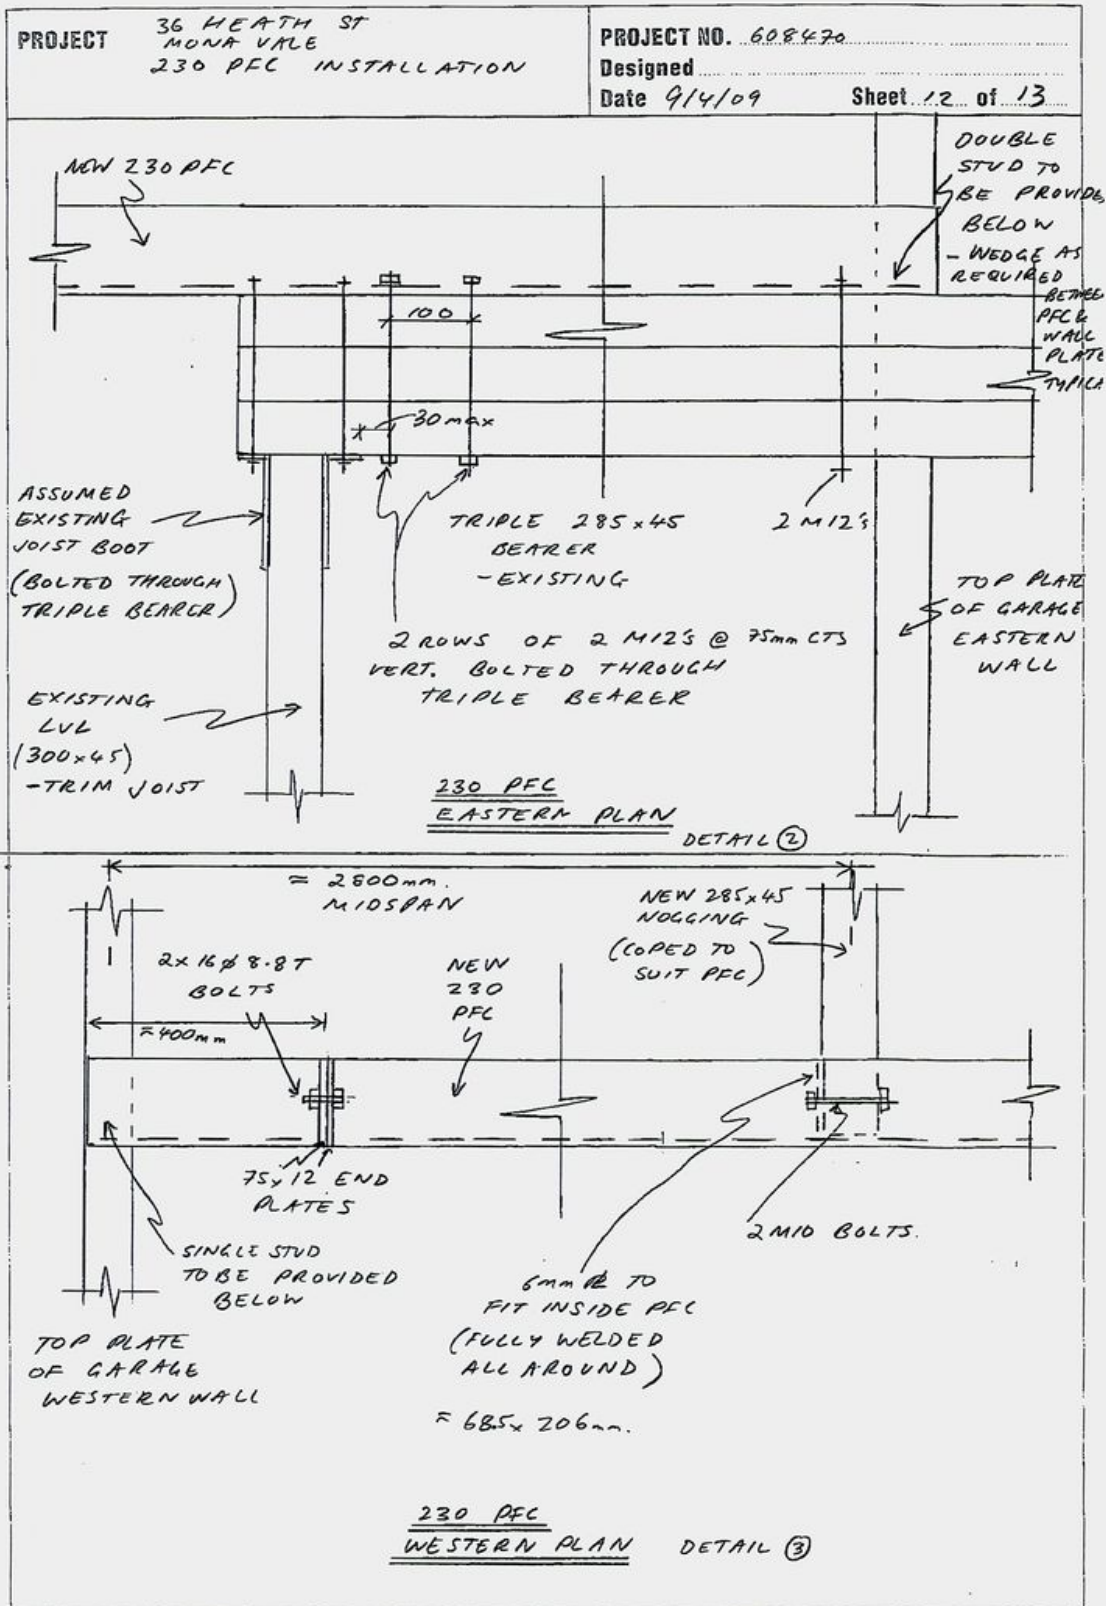 PROJECT
36 HEATH ST
MONA VALE
230 PFC INSTALLATION
PROJECT NO. 608470
Designed
Date 9/4/09 Sheet 12 of 13
NEW 230 PFC
DOUBLE
STUD TO
BE PROVIDE
BELOW
- WEDGE AS
REQUIRED
BETWEE
PFC &
WALL
PLATE
TYPICA
100
30 max
ASSUMED
EXISTING
JOIST BOOT
(BOLTED THROUGH
TRIPLE BEARER)
TRIPLE 285x45
BEARER
- EXISTING
2 M12's
2 ROWS OF 2 M12's @ 75mm CTS
VERT. BOLTED THROUGH
TRIPLE BEARER
TOP PLATE
OF GARAGE
EASTERN
WALL
EXISTING
LVL
(300x45)
- TRIM JOIST
230 PFC
EASTERN PLAN
DETAIL 2
≈ 2800mm.
MIDSPAN
NEW 285x45
NOGGING
(COPED TO
SUIT PFC)
2x16ø 8.8T
BOLTS
NEW
230
PFC
≈400mm
75x12 END
PLATES
2 M10 BOLTS.
SINGLE STUD
TO BE PROVIDED
BELOW
6mm PL TO
FIT INSIDE PFC
(FULLY WELDED
ALL AROUND)
≈ 68.5x 206mm.
TOP PLATE
OF GARAGE
WESTERN WALL
230 PFC
WESTERN PLAN DETAIL 3